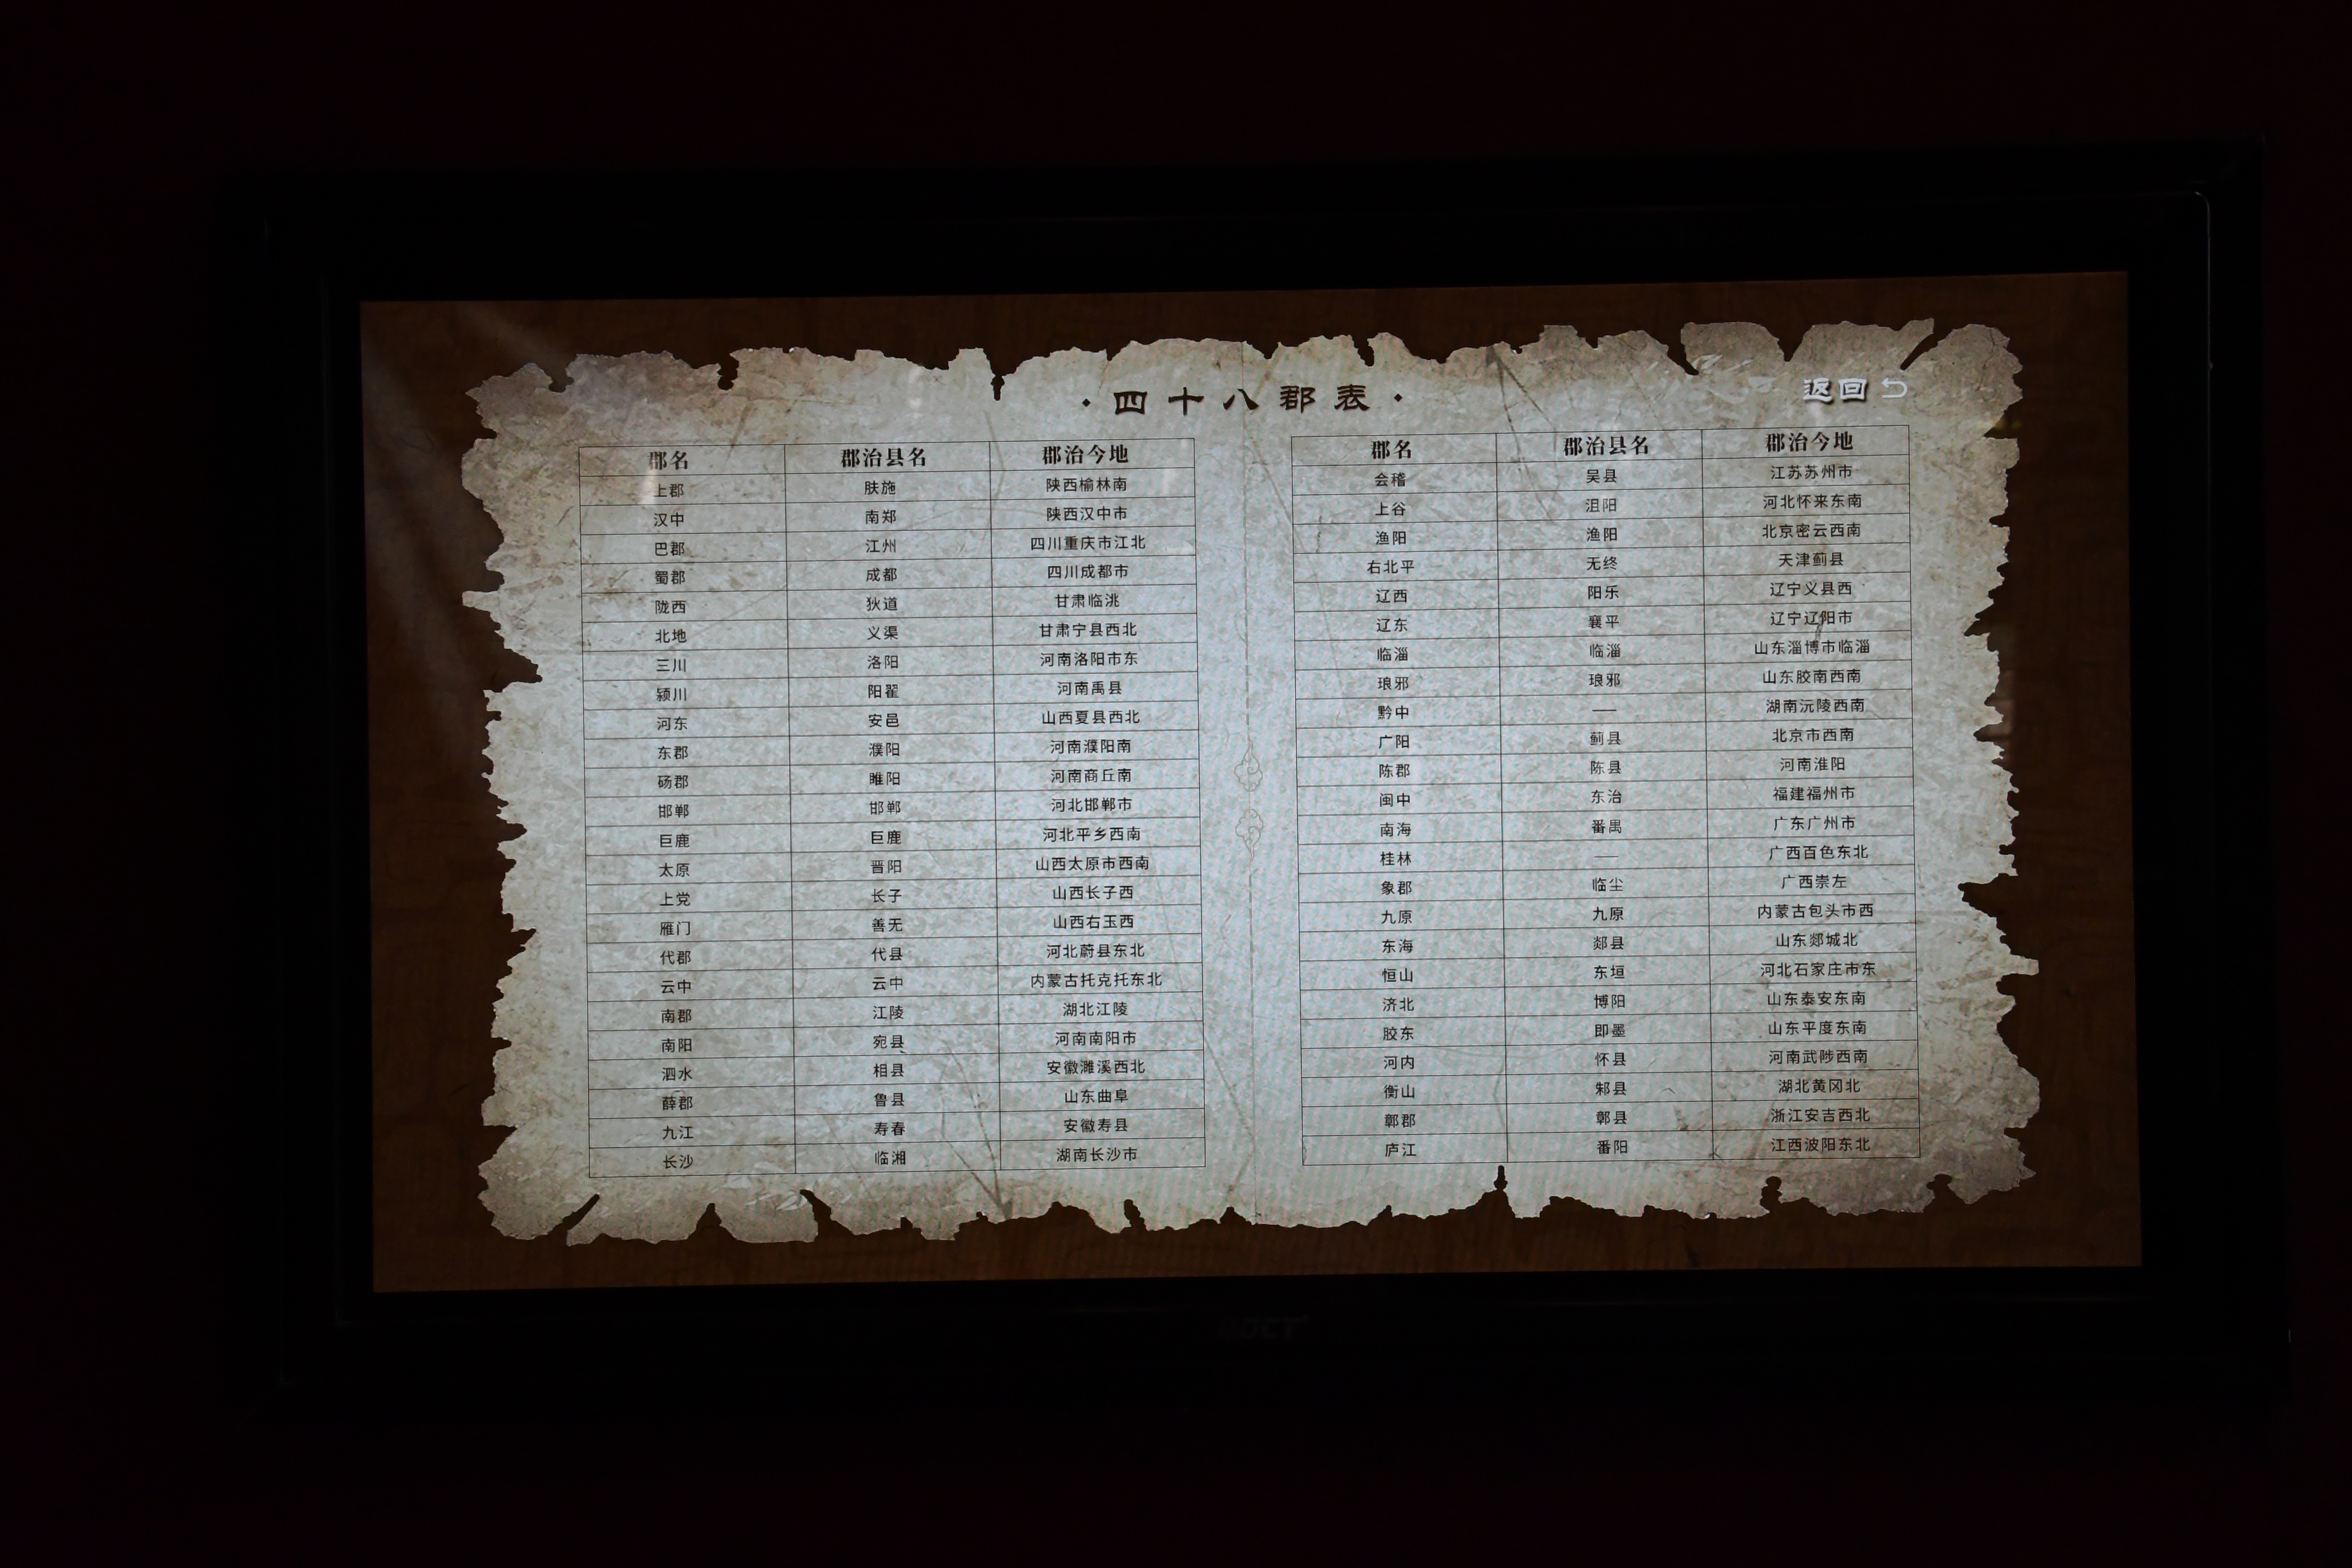 ·四十八郡表·
返回
郡名 郡治县名 郡治今地
上郡 肤施 陕西榆林南
汉中 南郑 陕西汉中市
巴郡 江州 四川重庆市江北
蜀郡 成都 四川成都市
陇西 狄道 甘肃临洮
北地 义渠 甘肃宁县西北
三川 洛阳 河南洛阳市东
颍川 阳翟 河南禹县
河东 安邑 山西夏县西北
东郡 濮阳 河南濮阳南
砀郡 睢阳 河南商丘南
邯郸 邯郸 河北邯郸市
巨鹿 巨鹿 河北平乡西南
太原 晋阳 山西太原市西南
上党 长子 山西长子西
雁门 善无 山西右玉西
代郡 代县 河北蔚县东北
云中 云中 内蒙古托克托东北
南郡 江陵 湖北江陵
南阳 宛县 河南南阳市
泗水 相县 安徽濉溪西北
薛郡 鲁县 山东曲阜
九江 寿春 安徽寿县
长沙 临湘 湖南长沙市
郡名 郡治县名 郡治今地
会稽 吴县 江苏苏州市
上谷 沮阳 河北怀来东南
渔阳 渔阳 北京密云西南
右北平 无终 天津蓟县
辽西 阳乐 辽宁义县西
辽东 襄平 辽宁辽阳市
临淄 临淄 山东淄博市临淄
琅邪 琅邪 山东胶南西南
黔中 —— 湖南沅陵西南
广阳 蓟县 北京市西南
陈郡 陈县 河南淮阳
闽中 东治 福建福州市
南海 番禺 广东广州市
桂林 —— 广西百色东北
象郡 临尘 广西崇左
九原 九原 内蒙古包头市西
东海 郯县 山东郯城北
恒山 东垣 河北石家庄市东
济北 博阳 山东泰安东南
胶东 即墨 山东平度东南
河内 怀县 河南武陟西南
衡山 邾县 湖北黄冈北
鄣郡 鄣县 浙江安吉西北
庐江 番阳 江西波阳东北